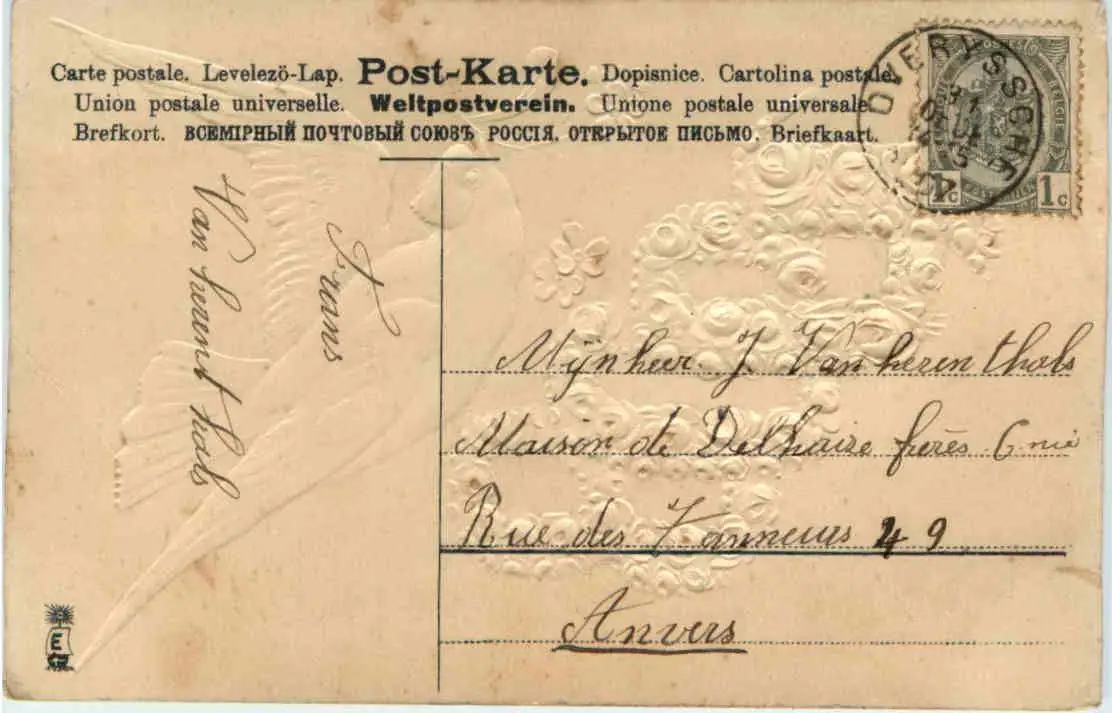 Carte postale. Levelezö-Lap. Post-Karte. Dopisnice. Cartolina postale.
Union postale universelle. Weltpostverein. Unione postale universale.
Brefkort. ВСЕМІРНЫЙ ПОЧТОВЫЙ СОЮЗЪ РОССІЯ. ОТКРЫТОЕ ПИСЬМО. Briefkaart.
OVERYSSCHE
1c 1c
Frans
Van herent hals
Mijnheer J. Van heren thals
Maison de Delhaize frères Cnie
Rue des Tanneurs 49
Anvers
E